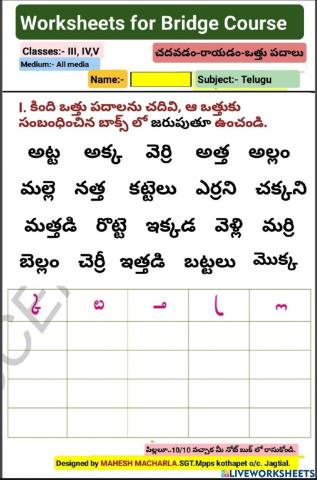 Worksheets for Bridge Course
Classes:- III, IV,V
చదవడం-రాయడం-ఒత్తు పదాలు
Medium:- All media
Name:-
Subject:- Telugu
I. కింది ఒత్తు పదాలను చదివి, ఆ ఒత్తుకు
సంబంధించిన బాక్స్ లో జరుపుతూ ఉంచండి.
అట్ట అక్క వెర్రి అత్త అల్లం
మల్లె నత్త కట్టెలు ఎర్రని చక్కని
మత్తడి రొట్టె ఇక్కడ వెళ్లి మర్రి
బెల్లం చెర్రీ ఇత్తడి బట్టలు మొక్క
పిల్లలూ..10/10 వచ్చాక మీ నోట్ బుక్ లో రాసుకోండి.
Designed by MAHESH MACHARLA.SGT.Mpps kothapet o/c. Jagtial.
LIVEWORKSHEETS